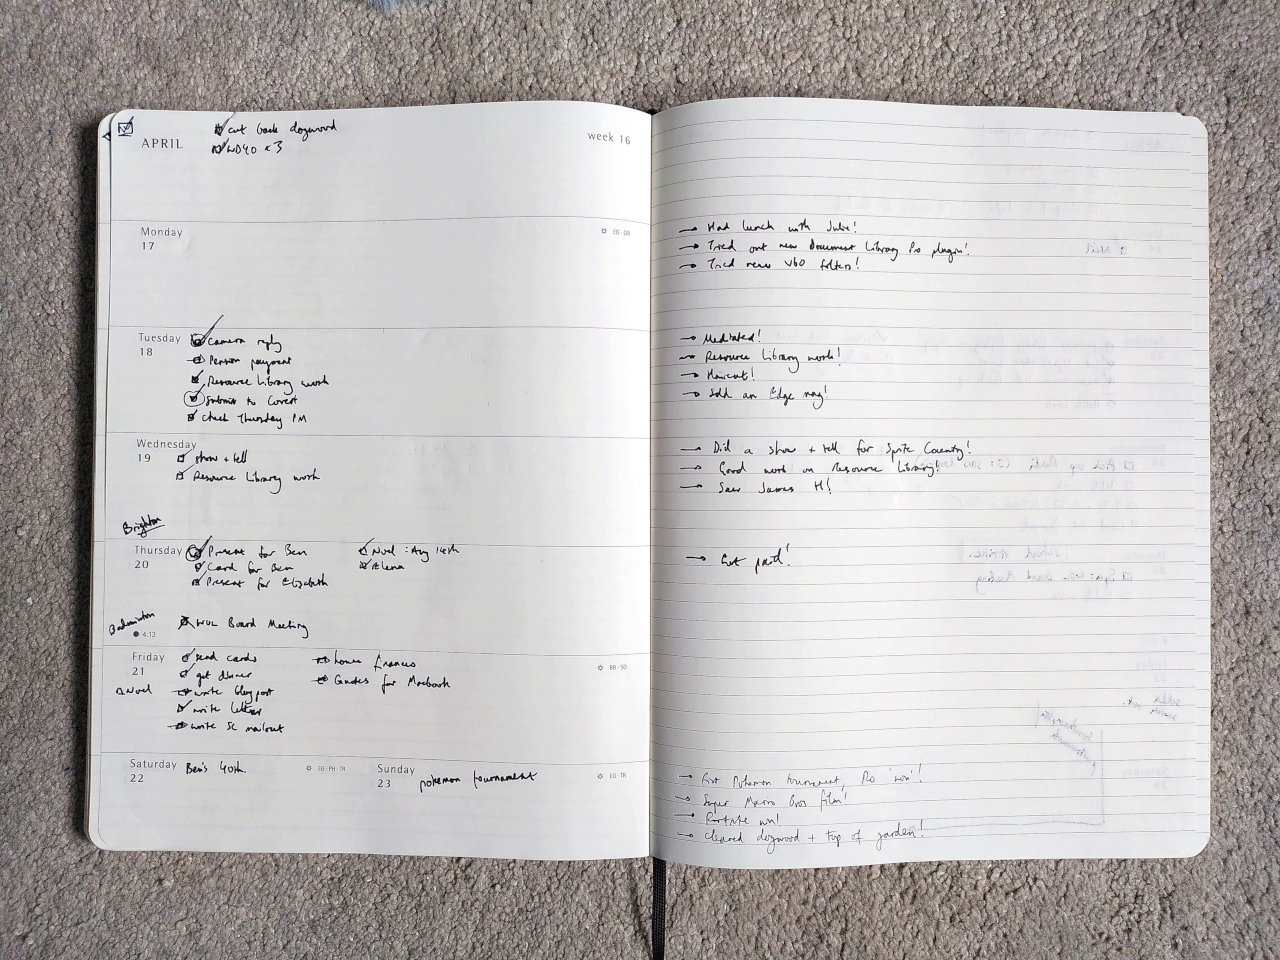 cut back dogwood
APRIL
WD40 x 3
week 16
Monday
17
EG · GR
Tuesday
18
Camera reply
Person payment
Resource Library work
Submit to Covert
Check Thursday PM
Wednesday
19
show + tell
Resource Library work
Brighton
Thursday
20
Present for Ben
Card for Ben
Present for Elizabeth
Noel : Aug 14th
Elena
Badminton
4:13
WUL Board Meeting
Friday
21
Noel
send cards
get dinner
write blog post
write letter
write SC mailout
house finances
Quotes for Macbook
BR · SG
Saturday
22
Ben's 40th
EG · PH · TR
Sunday
23
pokemon tournament
EG · TR
→ Had lunch with Julie!
→ Tried out new Document Library Pro plugin!
→ Tried new V60 filters!
→ Mediated!
→ Resource Library work!
→ Haircut!
→ Sold an Edge mag!
→ Did a show + tell for Sprite Country!
→ Good work on Resource Library!
→ Saw James H!
→ Got paid!
→ First Pokemon tournament, Ro 'won'!
→ Super Mario Bros film!
→ win!
→ Cleared dogwood + top of garden!